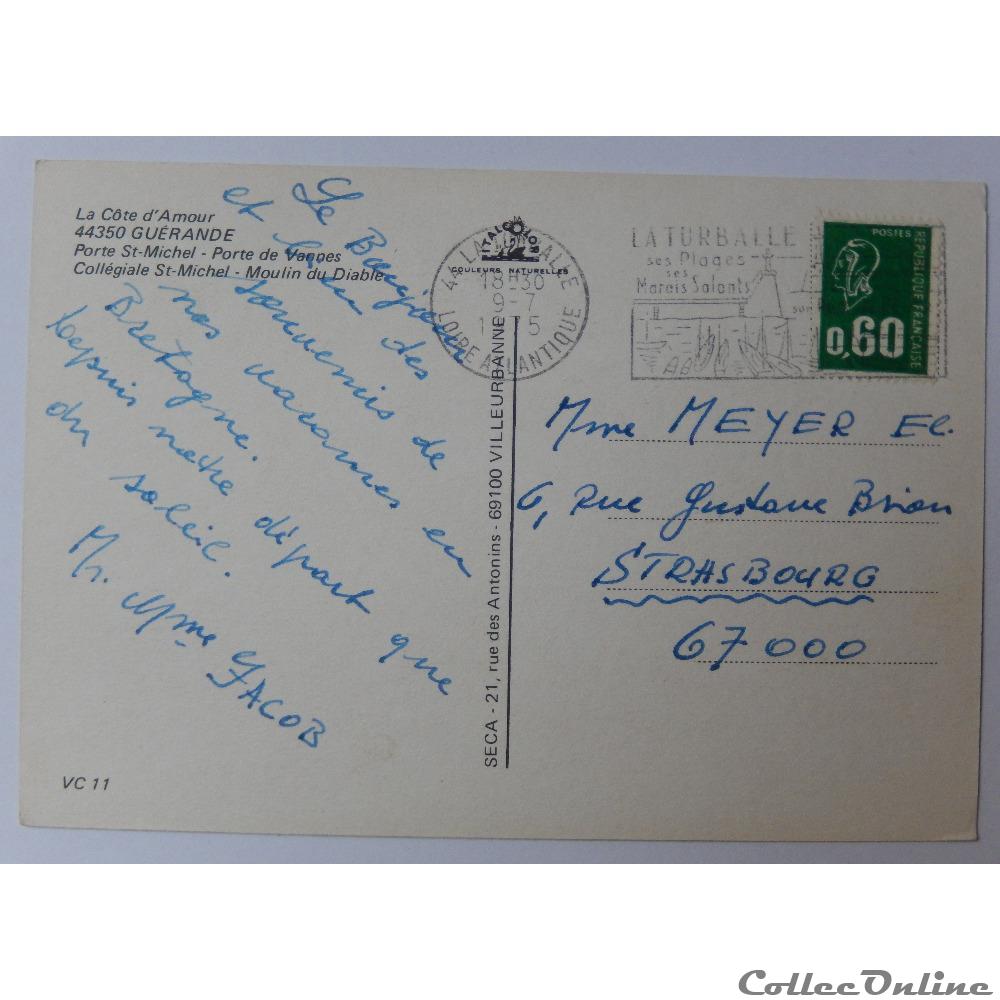 La Côte d'Amour
44350 GUÉRANDE
Porte St-Michel - Porte de Vannes
Collégiale St-Michel - Moulin du Diable
Le
et un des
souvenirs de
nos vacances en
Bretagne.
Depuis notre départ que
du soleil.
Mr. Mme JACOB
VC 11
ITALCOLOR
COULEURS NATURELLES
SECA - 21, rue des Antonins - 69100 VILLEURBANNE
44 LA TURBALLE
18H30
9-7
1975
LOIRE ATLANTIQUE
LA TURBALLE
ses Plages
ses
Marais Salants
POSTES
RÉPUBLIQUE FRANÇAISE
0,60
Mme MEYER El.
6, Rue Gustave Brion
STRASBOURG
67000
CollecOnline